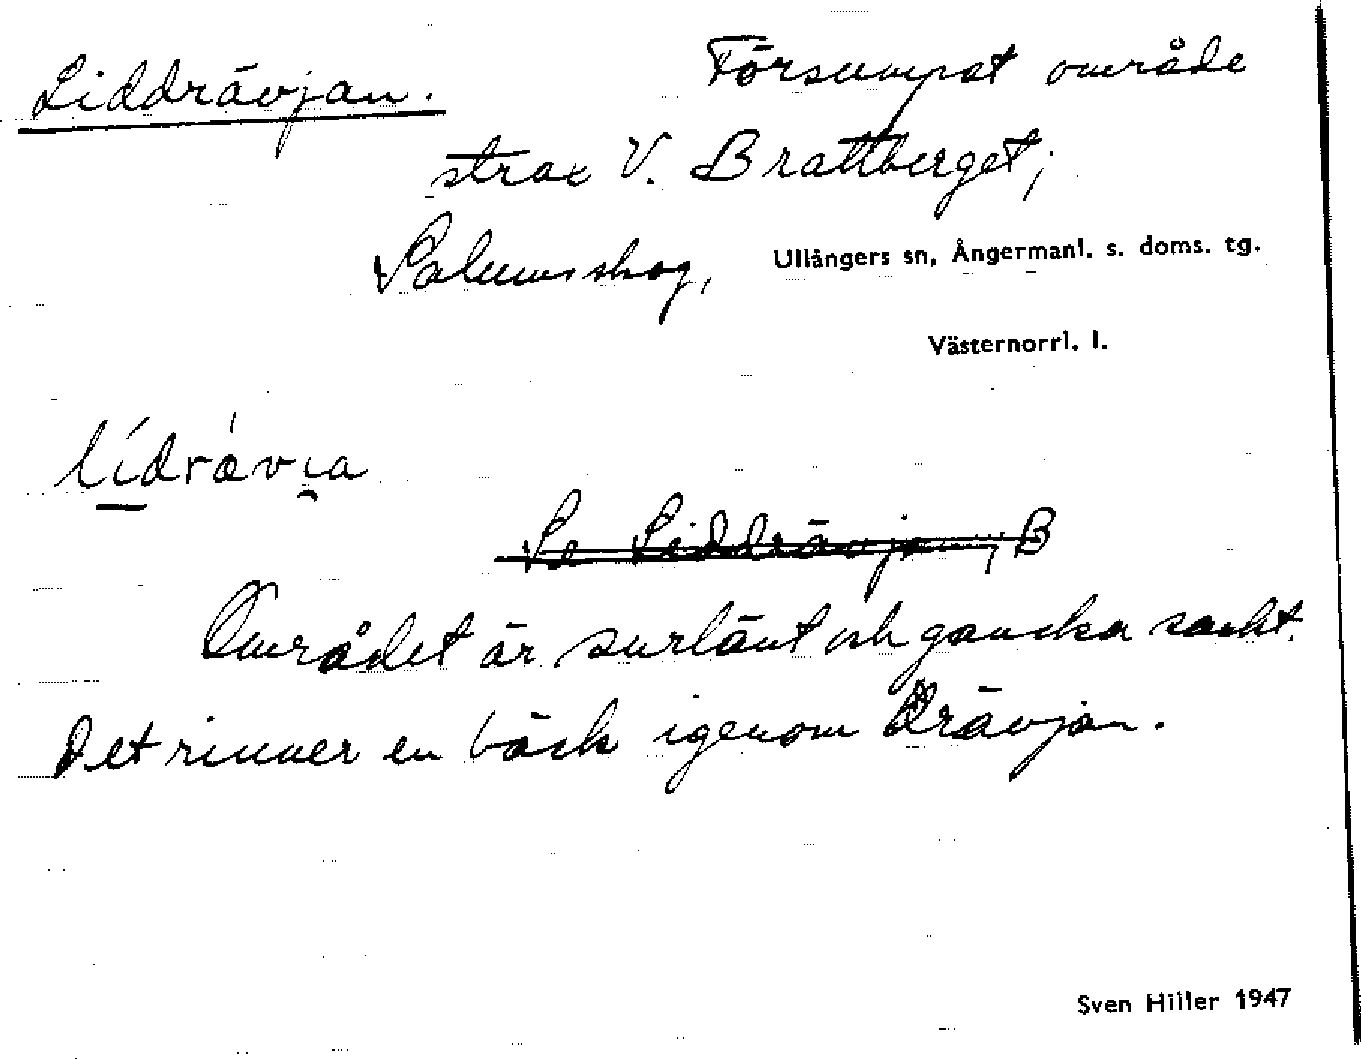 Liddrävjan.
Försumpat område
strax V. Brattberget,
Salumsskog,
Ullångers sn, Ångermanl. s. doms. tg.
Västernorrl. l.
lídrævi̯a
Se Liddrävjan, B
Området är surlänt och ganska sankt.
Det rinner en bäck igenom Drävjan.
Sven Hiller 1947